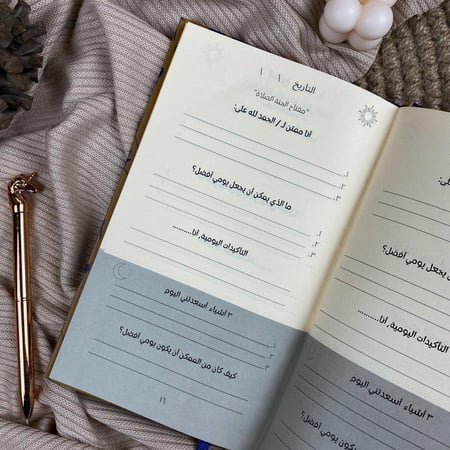 التاريخ \ \
"مفتاح الجنة الصلاة"
أنا ممتن لـ / الحمد لله على:
١.
٢.
٣.
ما الذي يمكن أن يجعل يومي أفضل؟
١.
٢.
٣.
التأكيدات اليومية, أنا..........
٣ أشياء أسعدتني اليوم
١.
٢.
٣.
كيف كان من الممكن أن يكون يومي أفضل؟
١٦
على:
يجعل يومي أفضل؟
التأكيدات اليومية, أنا..........
٣ أشياء أسعدتني اليوم
الممكن أن يكون يومي أفضل؟